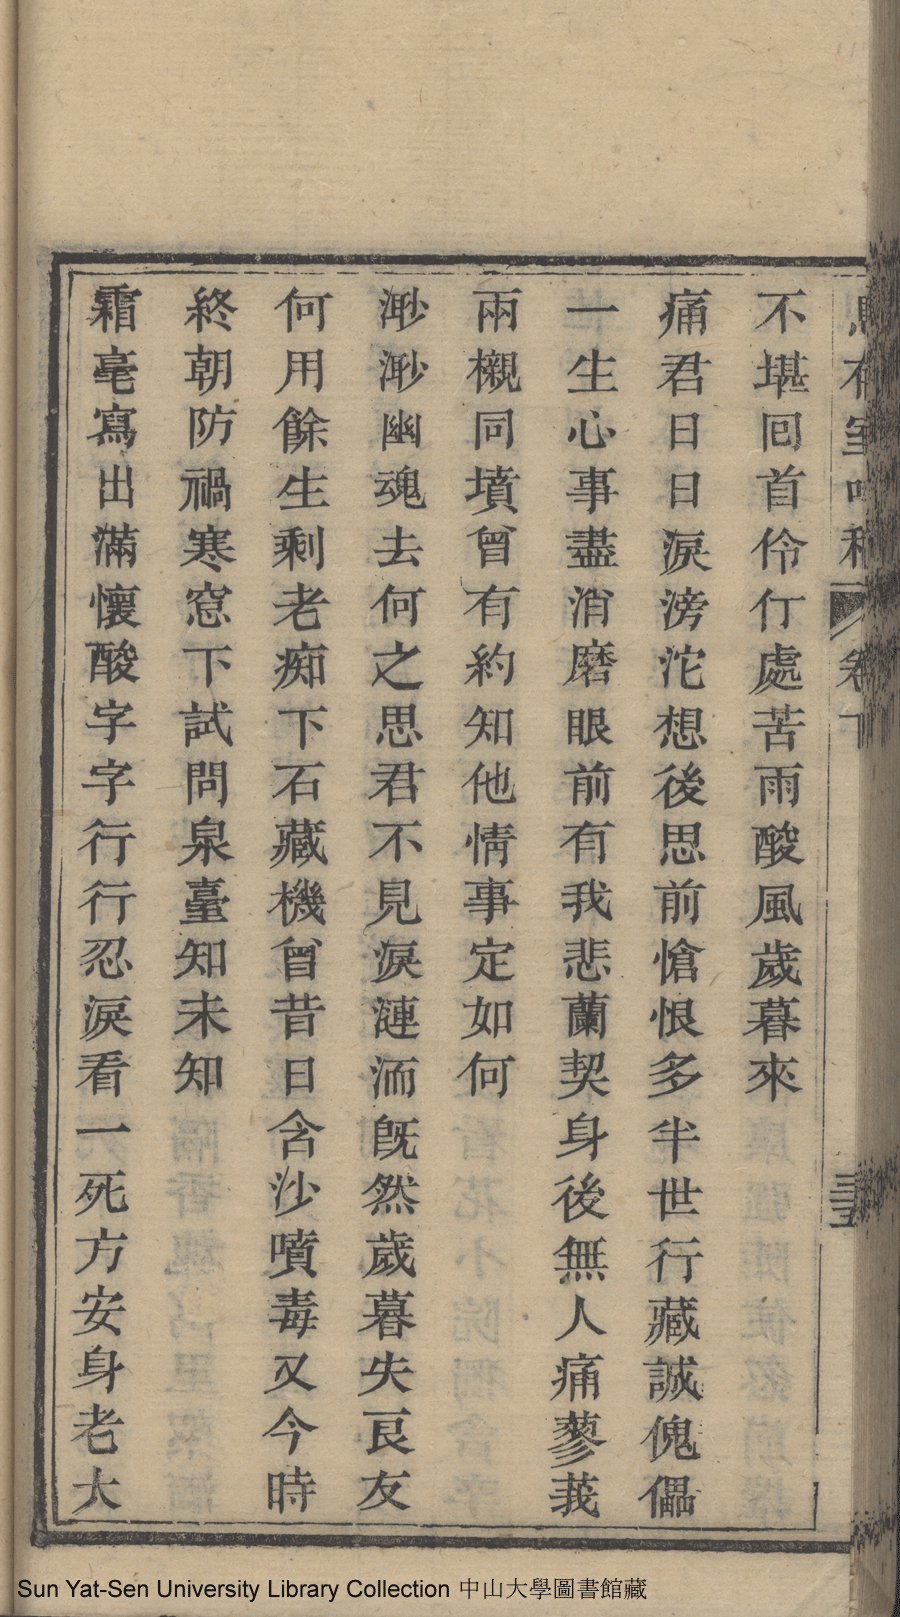 不堪回首伶仃處苦雨酸風歲暮來
痛君日日淚滂沱想後思前愴恨多半世行藏誠傀儡
一生心事盡消磨眼前有我悲蘭契身後無人痛蓼莪
兩櫬同墳曾有約知他情事定如何
渺渺幽魂去何之思君不見淚漣洏既然歲暮失良友
何用餘生剩老痴下石藏機曾昔日含沙噴毒又今時
終朝防禍寒窓下試問泉臺知未知
霜毫寫出滿懷酸字字行行忍淚看一死方安身老大
Sun Yat-Sen University Library Collection 中山大學圖書館藏